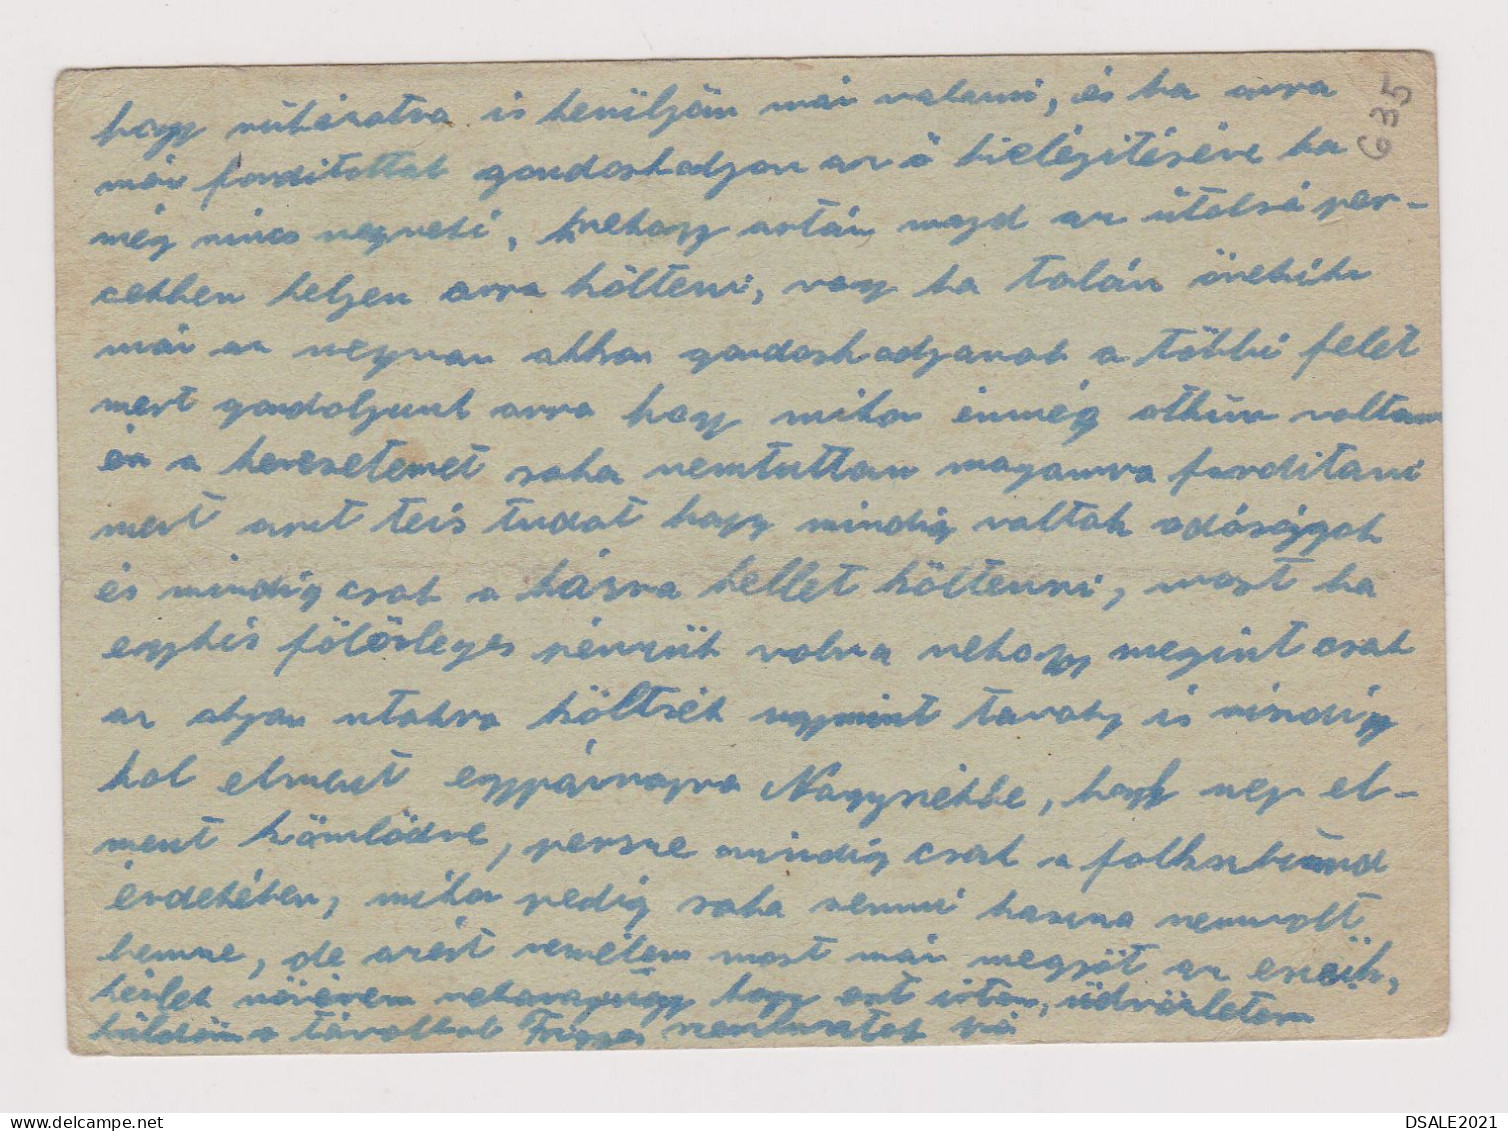 hogy ruházatra is kerüljön már valami, és ha arra
már fordítottak gondoskodjon az ő kielégitésére ha
még nincs neki, nehogy aztán majd az útolsó per-
cekben keljen arra költeni, vagy ha talán önekik
már az negvan akkor gondoskodjanak a többi felet
mert gondoljunk arra hogy mikor énmég othun voltam
én a keresetemet soha nemtuttam magamra forditani
mert azt teis tudot hogy mindig voltak adósággok
és mindig csak a házra kellet költenni, most ha
egykis fölösleges pénzük volna nehogy megint csak
az olyan utakra költsék ugymint tavaly is mindig
hol elment egypárnapra Nagy, hogy el-
ment kömlödre, persze mindig csak a folksbund
érdekében, mikor pedig soha semmi haszna nemvolt
benne, de azért remélem most már megjöt az eszük,
kérlek növérem neharagugy hogy ezt irtam, üdvözletem
küldöm a távolbol Frigyes
635
DSALE2021